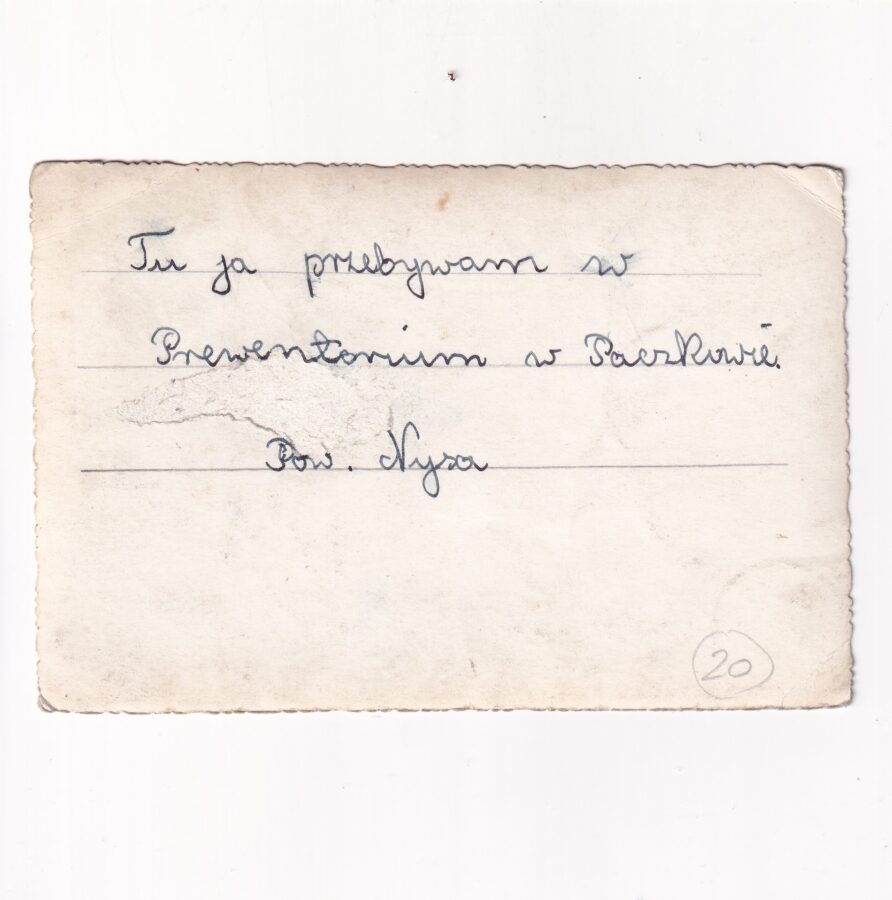 Tu ja przebywam w
Prewentorium w Paczkowie.
Pow. Nysa
20